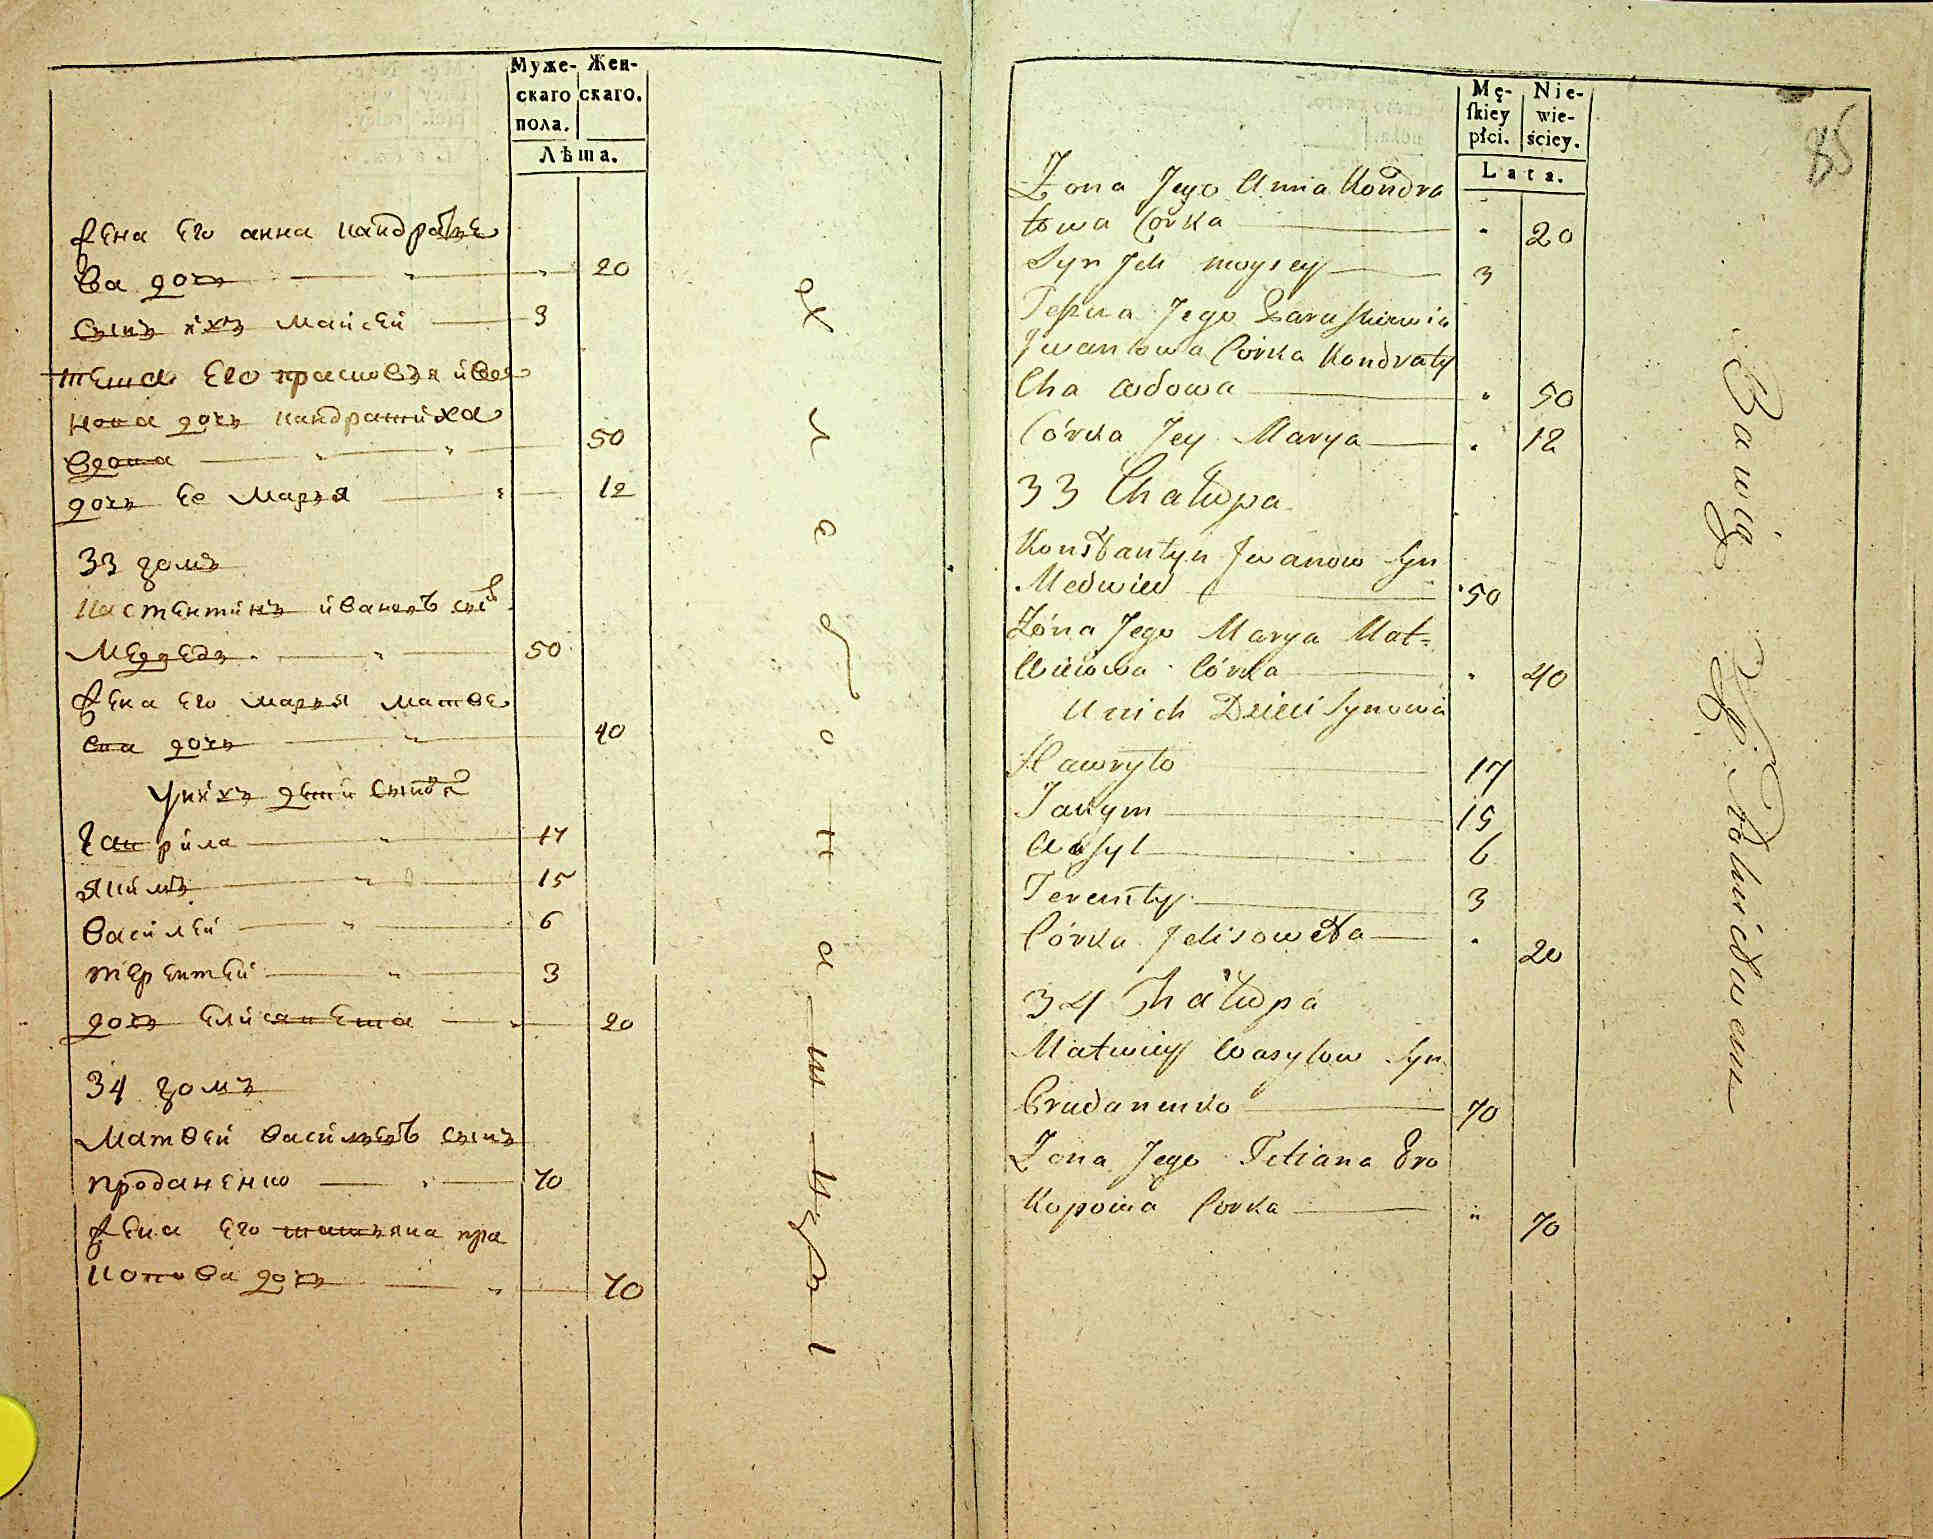 Муже- Жен-
скаго скаго.
пола.
Лѣта.
жена его анна кандратье
ва дочь " 20
сынъ ихъ майсей 3
теща его прасковья ива
нова дочь кандратиха
вдова " " 50
дочь ее марья " 12
33 домъ
кастентинъ ивановъ сынъ
медведь " 50
жена его марья матве
ева дочь " 40
у них дети сыновя
гаврила " 17
якимъ " 15
василей " 6
терентей " 3
дочь елисавета " 20
34 домъ
матвей васильевъ сынъ
проданенко " 70
жена его татьяна пра
копова дочь " 70
Mę- Nie-
skiey wie-
płci. ściey.
Lata.
85
Zona Jego Anna Kondra
towa Corka " 20
Syn Ich moysey 3
Teszcza Jego
Iwanowa Córka Kondraty
Cha wdowa " 50
Córka Jey Marya " 12
33 Chałupa
Konstantyn Iwanow Syn
Medwied 50
Zóna Jego Marya Mat-
wieiowa Córka " 40
U nich Dzieci Synowia
Hawryło 17
Jakym 15
Wasyl 6
Terenty 3
Córka Jelisoweta " 20
34 Chałupa
Matwiey Wasylow Syn
Prudanenko 70
Zona Jego Tetiana Pro
kopowa Corka " 70